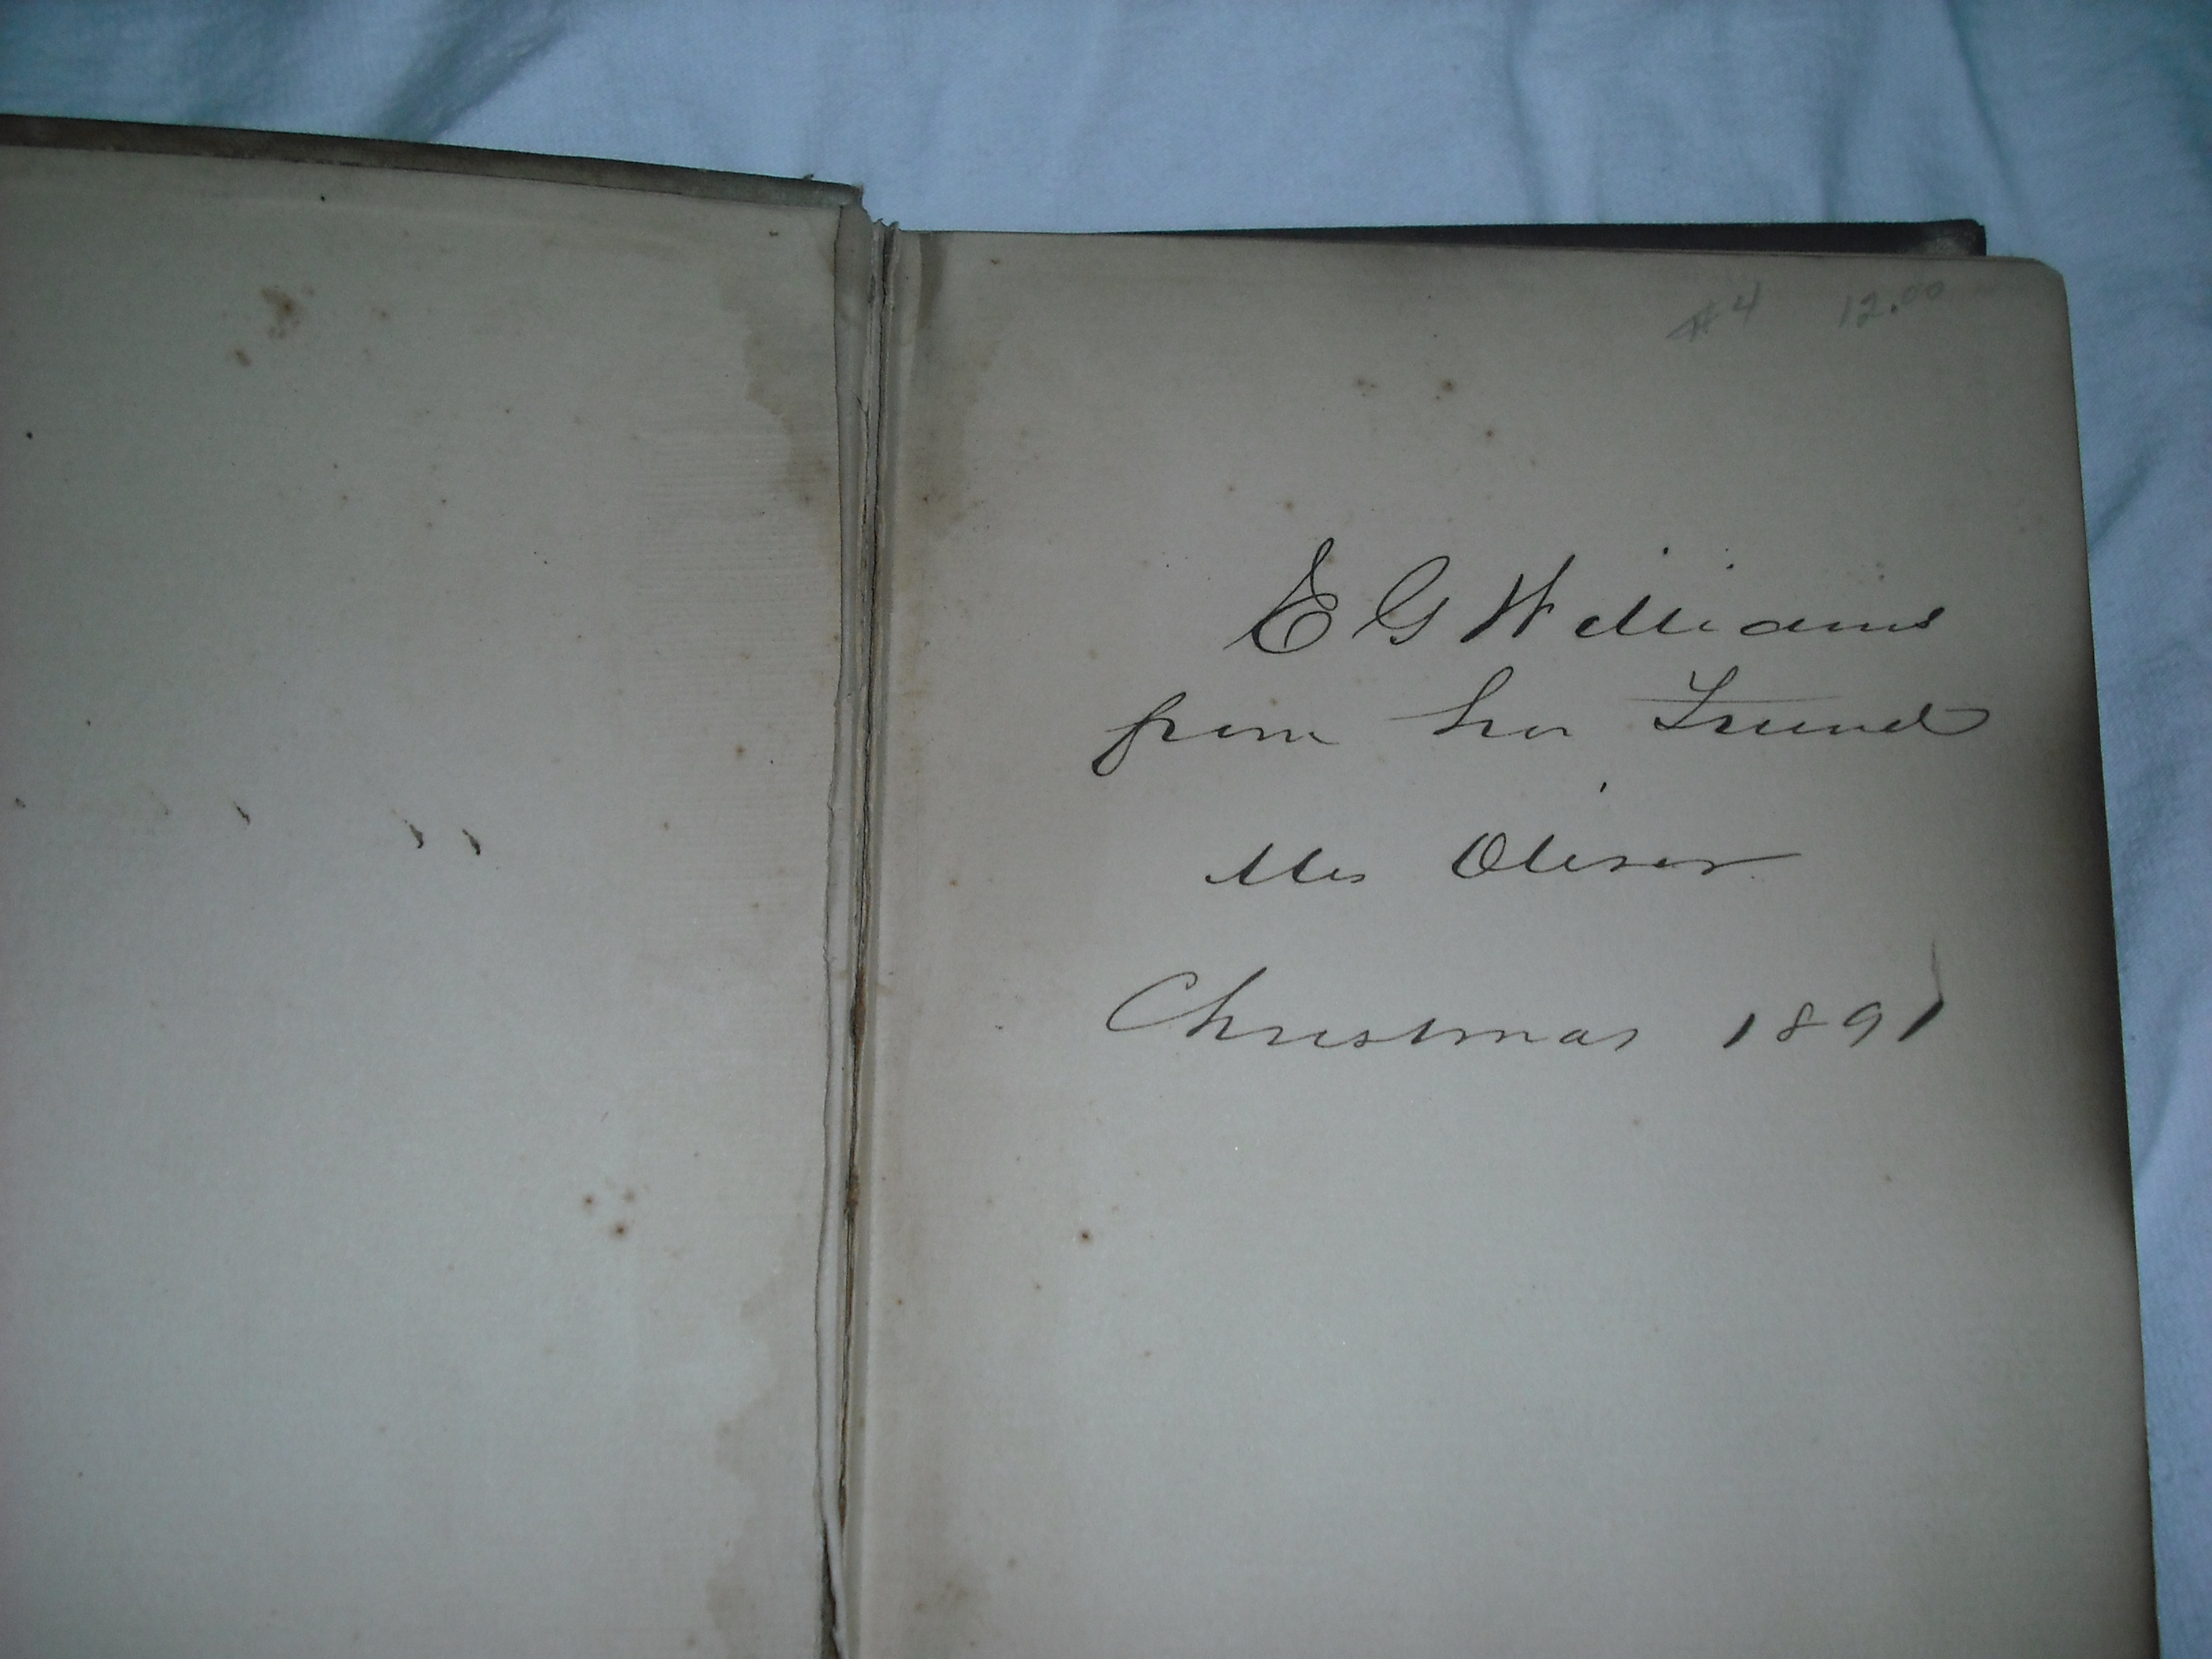 #4 12.00
E G Williams
from her Friend
Mrs Oliver
Christmas 1891